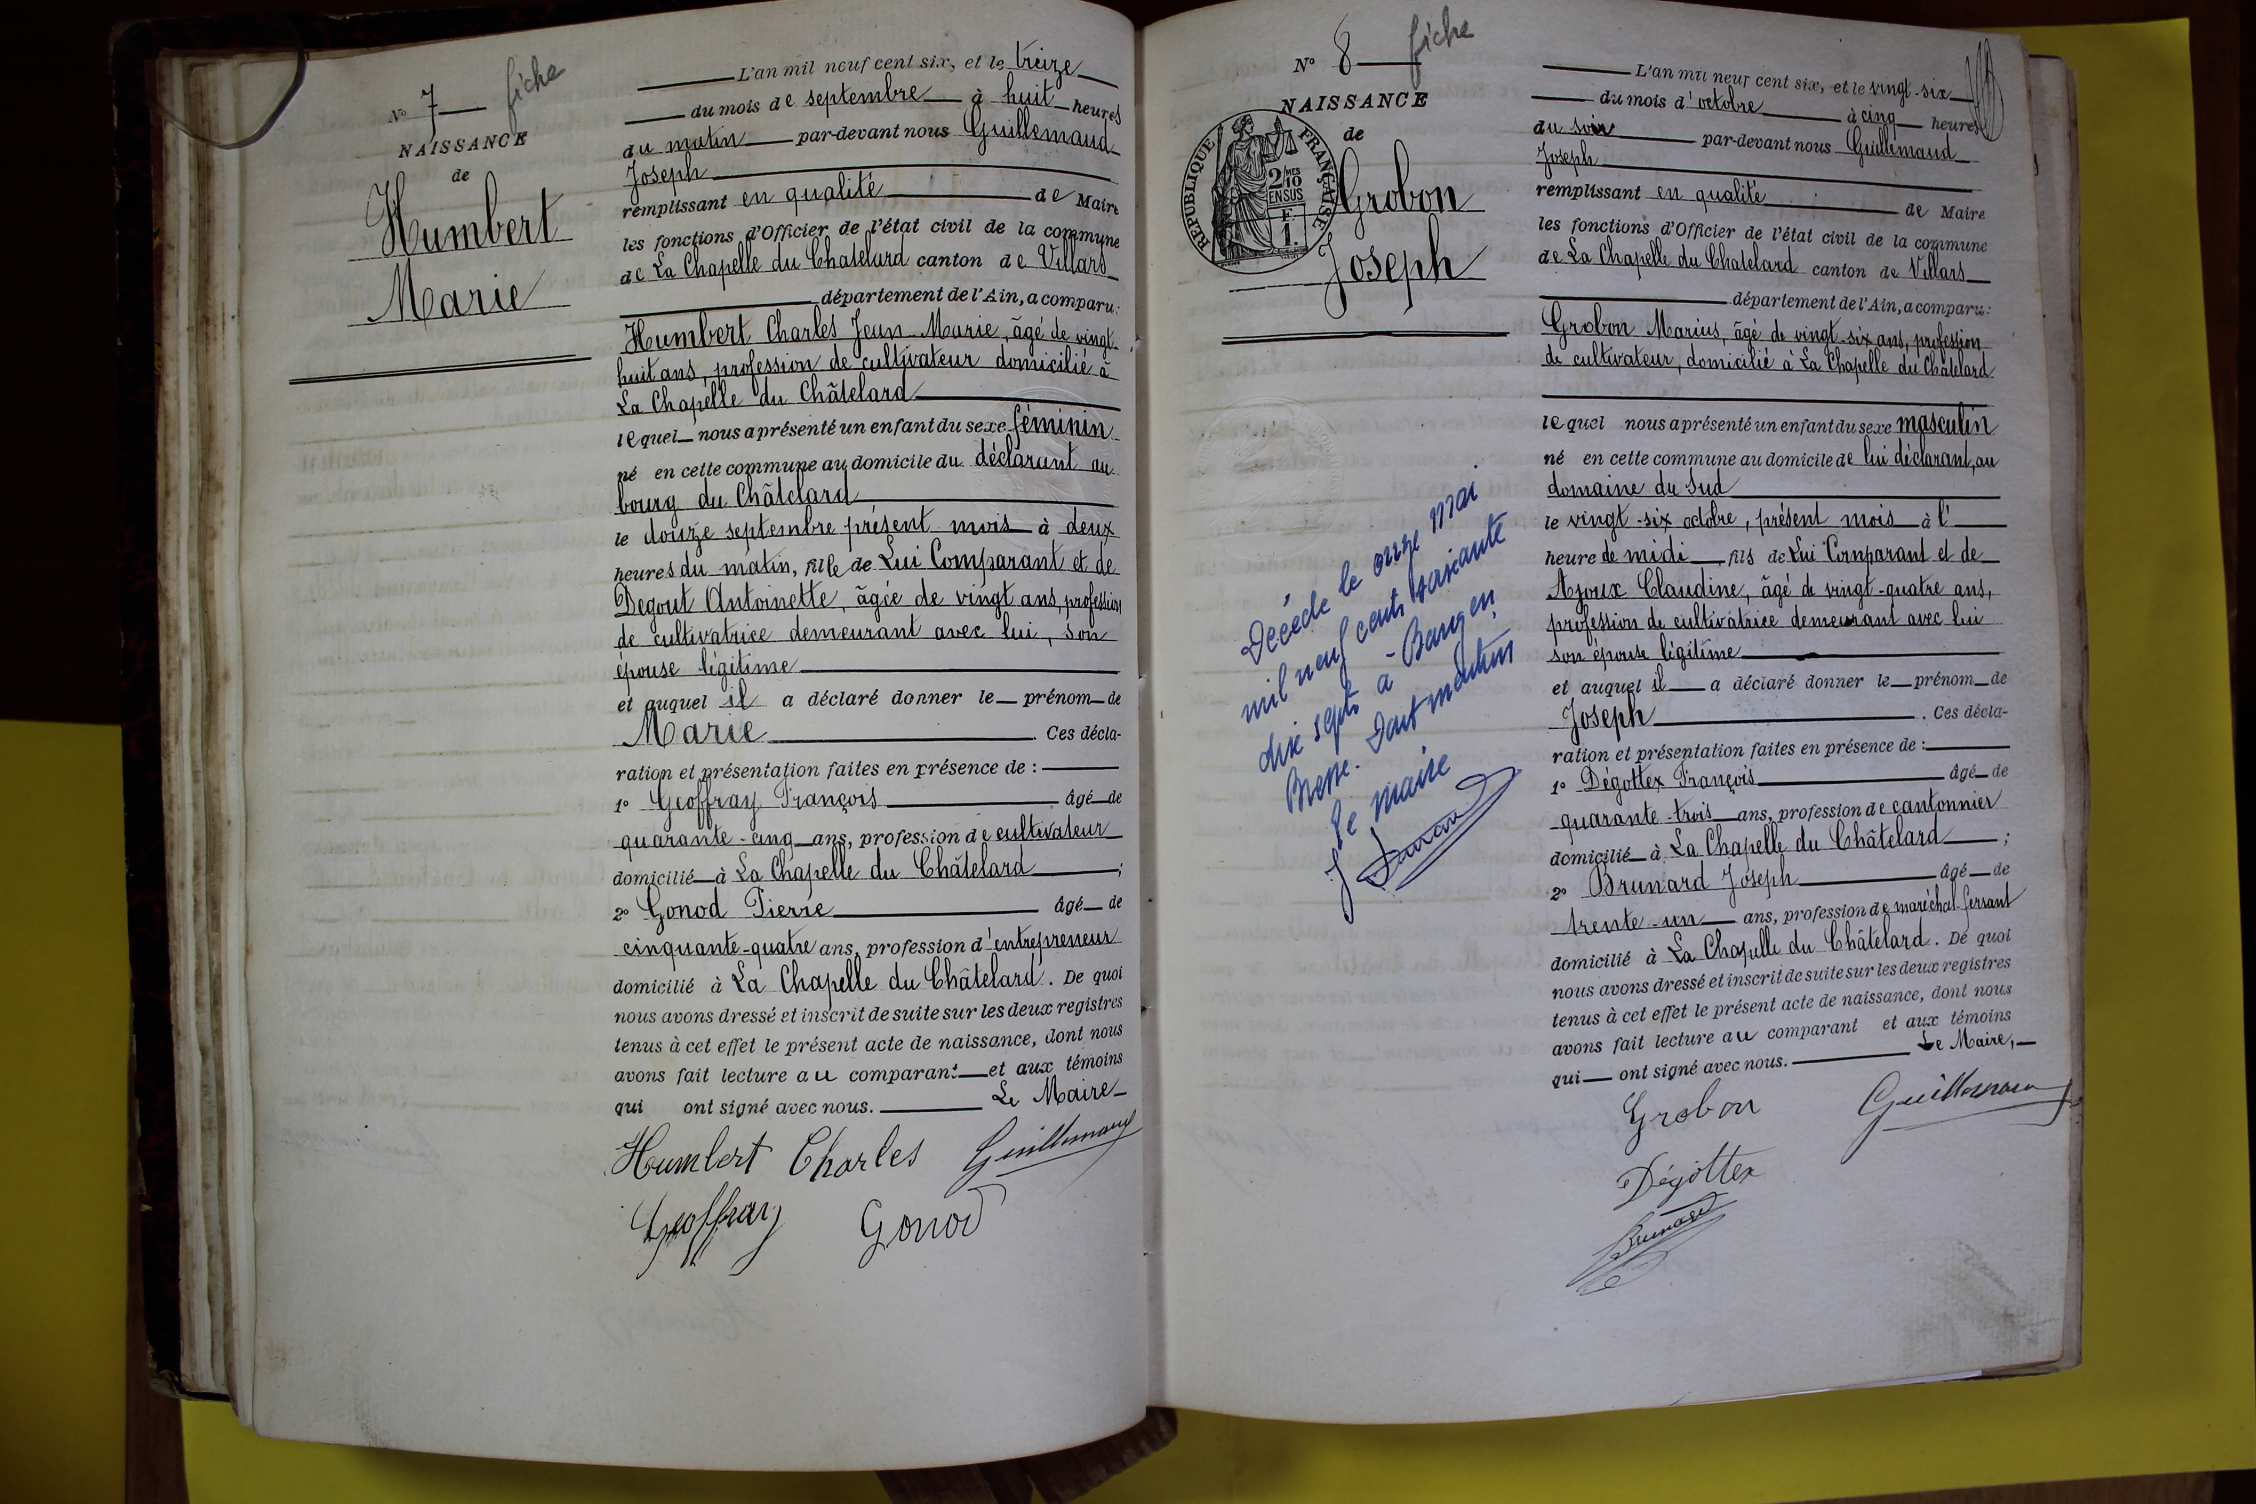 N° 7 fiche
NAISSANCE
de
Humbert
Marie
L'an mil neuf cent six, et le treize
du mois de septembre à huit heures
du matin par-devant nous Guillemaud
Joseph
remplissant en qualité de Maire
les fonctions d'Officier de l'état civil de la commune
de La Chapelle du Chatelard canton de Villars
département de l'Ain, a comparu:
Humbert Charles Jean Marie, âgé de vingt-
huit ans, profession de cultivateur domicilié à
La Chapelle du Châtelard
lequel nous a présenté un enfant du sexe féminin
né en cette commune au domicile du déclarant au
bourg du Châtelard
le douze septembre présent mois à deux
heures du matin, fille de Lui Comparant et de
Degout Antoinette, âgée de vingt ans, profession
de cultivatrice demeurant avec lui, son
épouse légitime
et auquel il a déclaré donner le prénom de
Marie. Ces décla-
ration et présentation faites en présence de :
1° Geoffray François âgé de
quarante-cinq ans, profession de cultivateur
domicilié à La Chapelle du Châtelard ;
2° Gonod Pierre âgé de
cinquante-quatre ans, profession d'entrepreneur
domicilié à La Chapelle du Châtelard. De quoi
nous avons dressé et inscrit de suite sur les deux registres
tenus à cet effet le présent acte de naissance, dont nous
avons fait lecture au comparant et aux témoins
qui ont signé avec nous. Le Maire
Humbert Charles Guillemaud
Geoffray Gonod
N° 8 fiche
NAISSANCE
de
RÉPUBLIQUE FRANÇAISE
2/10 MES
EN SUS
F.
1.
Grobon
Joseph
Décédé le onze mai
mil neuf cent soixante
dix sept à Baug en
Bresse. Dont mention
le maire
L'an mil neuf cent six, et le vingt-six
du mois d'octobre à cinq heures
du soir par-devant nous Guillemaud
Joseph
remplissant en qualité de Maire
les fonctions d'Officier de l'état civil de la commune
de La Chapelle du Chatelard canton de Villars
département de l'Ain, a comparu:
Grobon Marius, âgé de vingt-six ans, profession
de cultivateur, domicilié à La Chapelle du Châtelard
lequel nous a présenté un enfant du sexe masculin
né en cette commune au domicile de lui déclarant, au
domaine du Sud
le vingt-six octobre, présent mois à l'
heure de midi fils de Lui Comparant et de
Ajoux Claudine, âgé de vingt-quatre ans,
profession de cultivatrice demeurant avec lui
son épouse légitime
et auquel il a déclaré donner le prénom de
Joseph. Ces décla-
ration et présentation faites en présence de :
1° Dégottex François âgé de
quarante-trois ans, profession de cantonnier
domicilié à La Chapelle du Châtelard ;
2° Brunard Joseph âgé de
trente-un ans, profession de maréchal-ferrant
domicilié à La Chapelle du Châtelard. De quoi
nous avons dressé et inscrit de suite sur les deux registres
tenus à cet effet le présent acte de naissance, dont nous
avons fait lecture au comparant et aux témoins
qui ont signé avec nous. Le Maire,
Grobon Guillemaud
Dégottex
Brunard